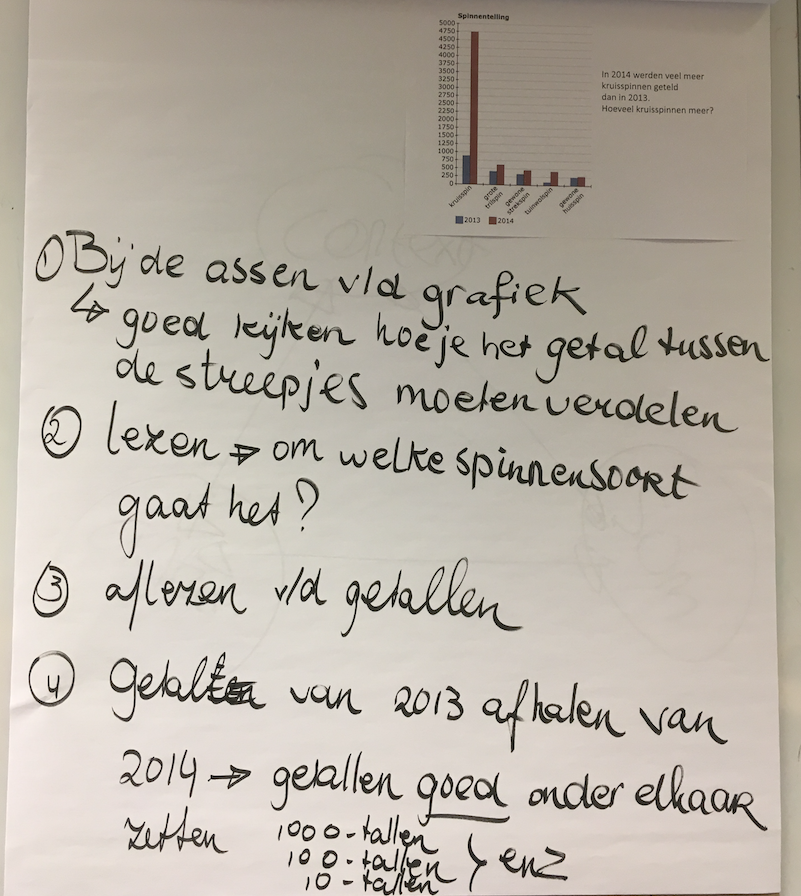 Spinnentelling
5000
4750
4500
4250
4000
3750
3500
3250
3000
2750
2500
2250
2000
1750
1500
1250
1000
750
500
250
0
kruisspin
grote
trilspin
gewone
strekspin
tuinwolfspin
gewone
huisspin
2013 2014
In 2014 werden veel meer
kruisspinnen geteld
dan in 2013.
Hoeveel kruisspinnen meer?
① Bij de assen v/d grafiek
↳ goed kijken hoe je het getal tussen
de streepjes moeten verdelen
② lezen ⇒ om welke spinnensoort
gaat het?
③ aflezen v/d getallen
④ Getal van 2013 afhalen van
2014 → getallen goed onder elkaar
zetten 1000-tallen
100-tallen > enz
10-tallen